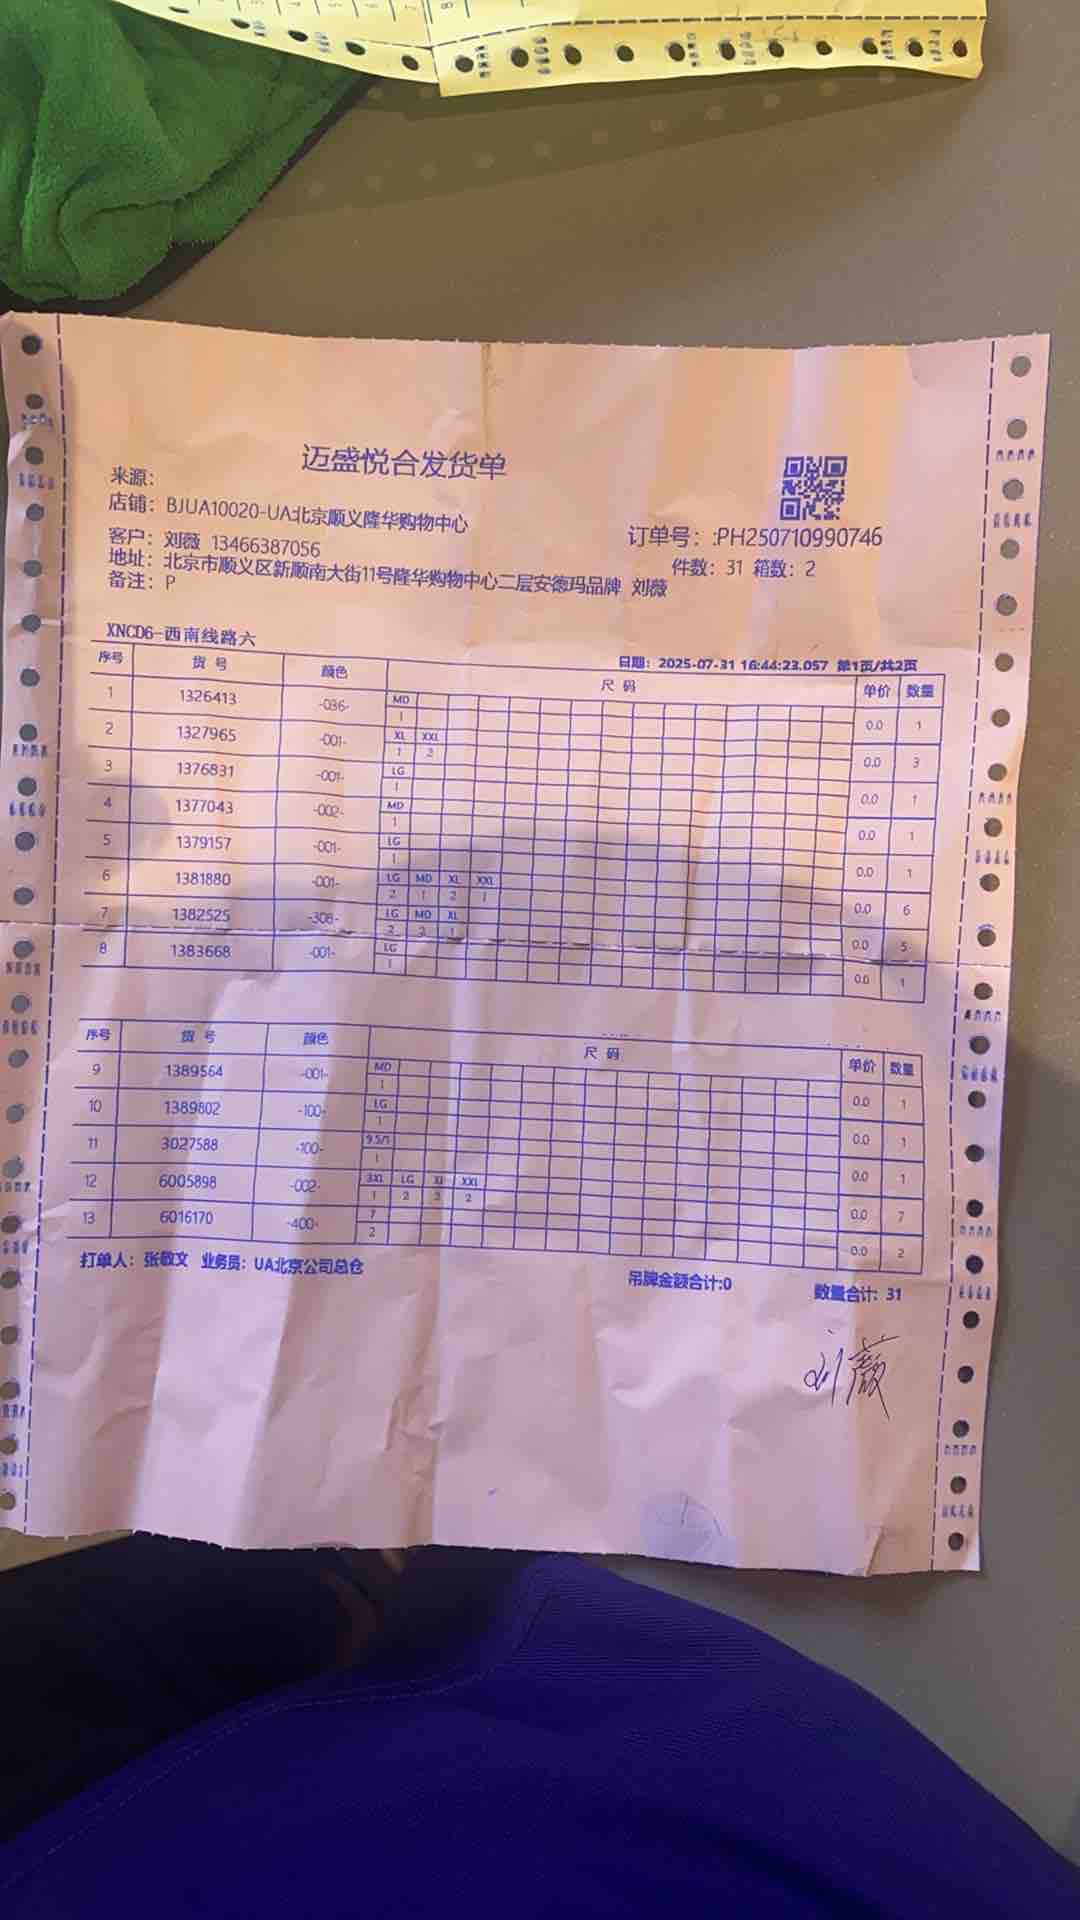 迈盛悦合发货单
来源：
店铺：BJUA10020-UA北京顺义隆华购物中心
客户：刘薇 13466387056
订单号：:PH250710990746
地址：北京市顺义区新顺南大街11号隆华购物中心二层安德玛品牌 刘薇
件数：31 箱数：2
备注：P
XNCD6-西南线路六
日期：2025-07-31 16:44:23.057 第1页/共2页
序号 货 号 颜色 尺 码 单价 数量
1 1326413 -036- MD 0.0 1
1
2 1327965 -001- XL XXL 0.0 3
1 2
3 1376831 -001- LG 0.0 1
1
4 1377043 -002- MD 0.0 1
1
5 1379157 -001- LG 0.0 1
1
6 1381880 -001- LG MD XL XXL 0.0 6
2 1 2 1
7 1382525 -308- LG MD XL 0.0 5
2 2 1
8 1383668 -001- LG 0.0 1
1
序号 货 号 颜色 尺 码 单价 数量
9 1389564 -001- MD 0.0 1
1
10 1389802 -100- LG 0.0 1
1
11 3027588 -100- 9.5/1 0.0 1
1
12 6005898 -002- 3XL LG XL XXL 0.0 7
1 2 2 2
13 6016170 -400- 7 0.0 2
2
打单人：张敬文 业务员：UA北京公司总仓
吊牌金额合计:0
数量合计：31
刘薇